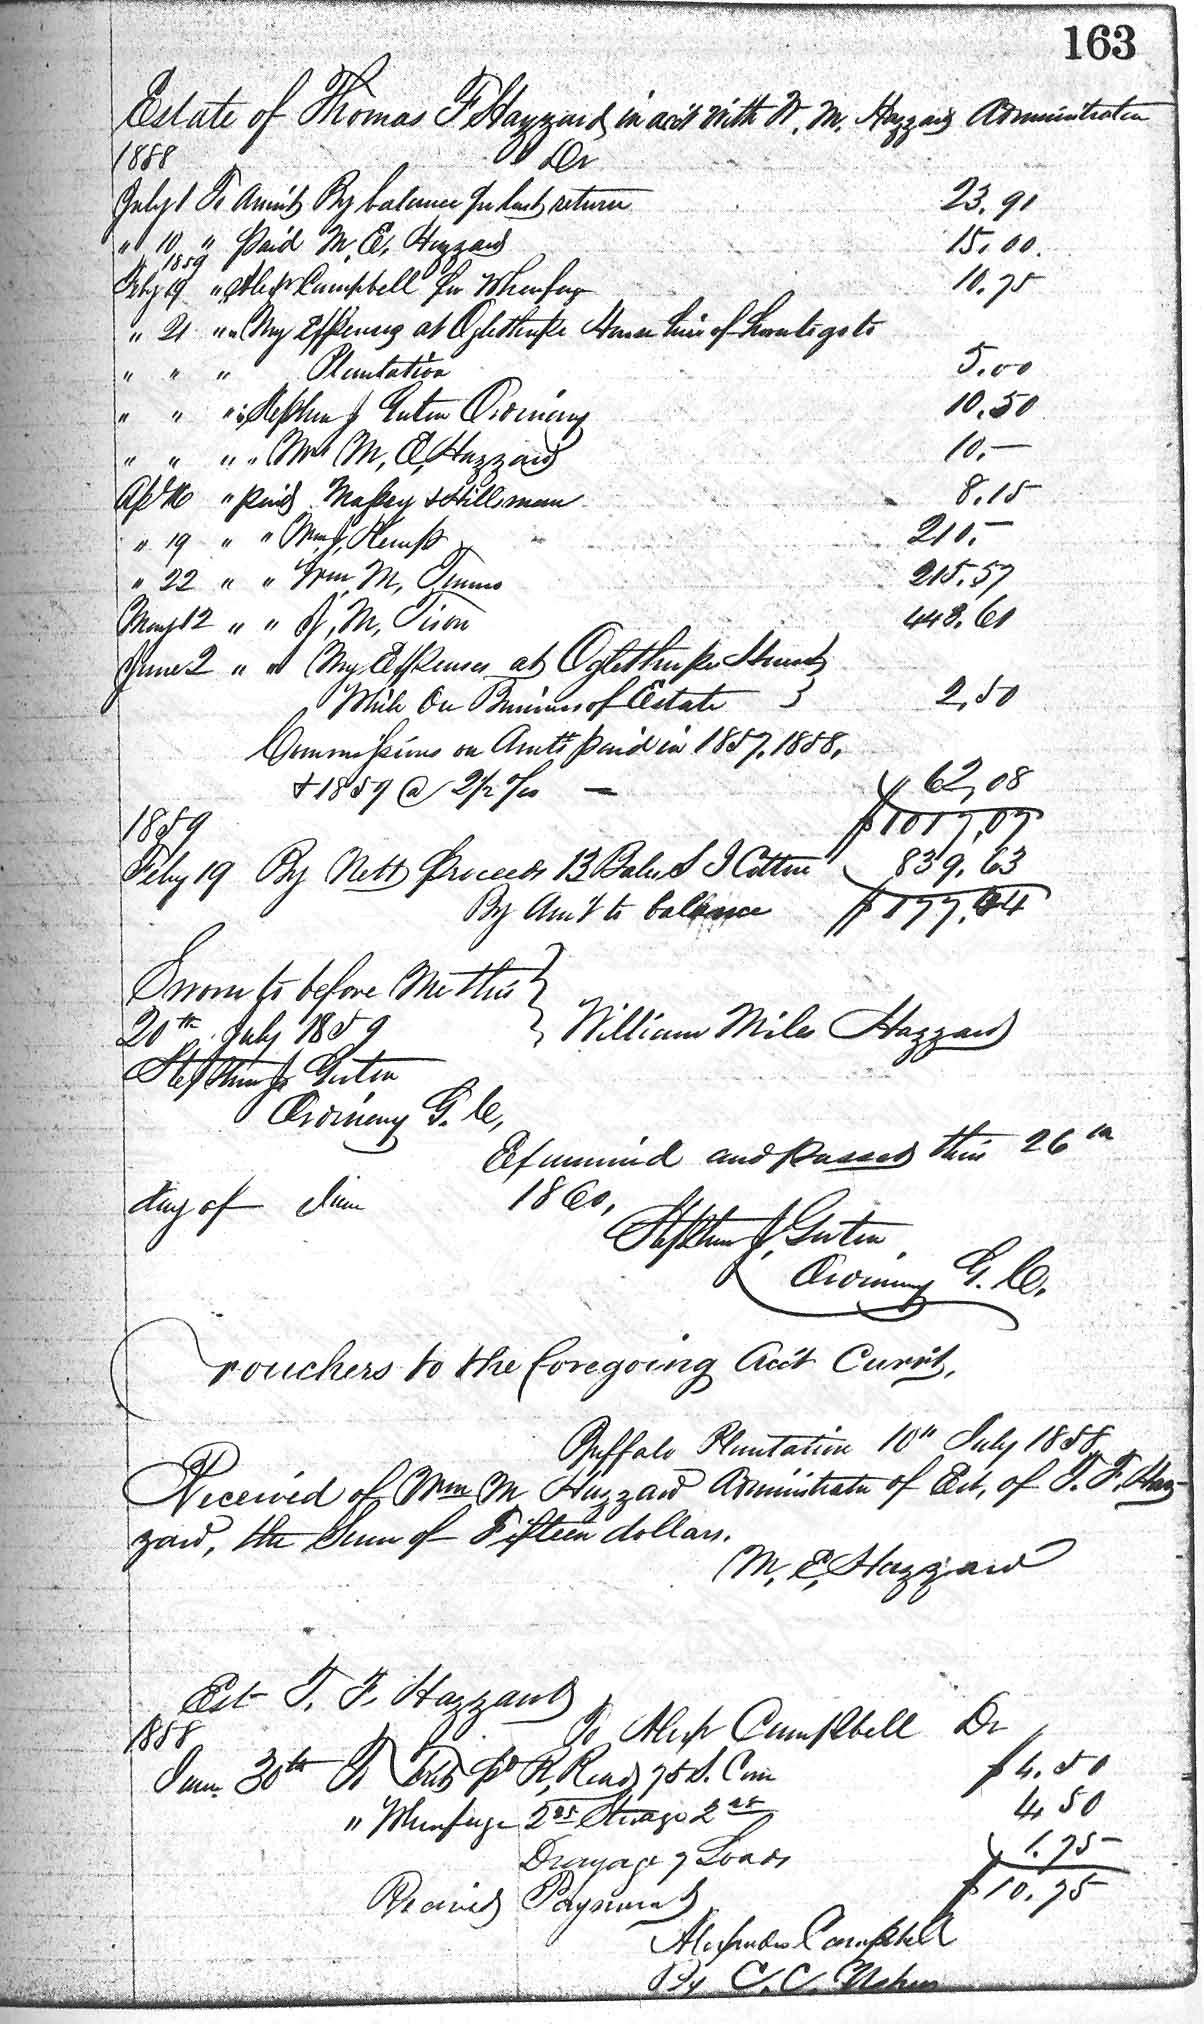 163
Estate of Thomas F Hazzard, in acct with W. M. Hazzard Administrator
1858 Dr
July 1 To Amnt By balance pr last return 23.91
" 10 " paid M. E. Hazzard 15.00
1859
Feby 19 " Alexr Campbell for Wharfage 10.75
" 21 " " My Expenses at Oglethorpe House hire of boat to go to
" " " Plantation 5.00
" " " " Stephen J Gorton Ordinary 10.50
" " " " Mrs M. E. Hazzard 10.—
Apl 16 " paid Massey & Hillsman 8.15
" 19 " " Wm J. Kemp 210.—
" 22 " " Wm M. Timmo 215.57
May 12 " " J. M. Tison 448.61
June 2 " " My Expenses at Oglethorpe House }
While On Business of Estate } 2.50
Commissions on Amts paid in 1857. 1858.
& 1859 @ 2½ % — 62,08
1859 $1017,07
Feby 19 By Nett proceeds 13 Bales S I Cotton 839.63
By Am't to balance $177.44
Sworn to before Me this }
20th July 1859 } William Miles Hazzard
Stephen J. Gorton
Ordinary G. C.
Examined and passed this 26th
day of June 1860.
Stephen J. Gorton
Ordinary G. C.
Vouchers to the foregoing Acct Currt.
Buffalo Plantation 10th July 1858
Received of Wm M Hazzard Administrator of Est. of T. F. Haz-
zard, the Sum of Fifteen dollars.
M. E. Hazzard
Est T. F. Hazzard
1858 To Alexr Campbell Dr
30th To pd R, Read 75 S. Corn $4.50
" Wharfage 2.25 Storage 2.25 4 50
Drayage 7 Loads 1.75
Received Payment $10.75
Alexander Campbell
By C. C.